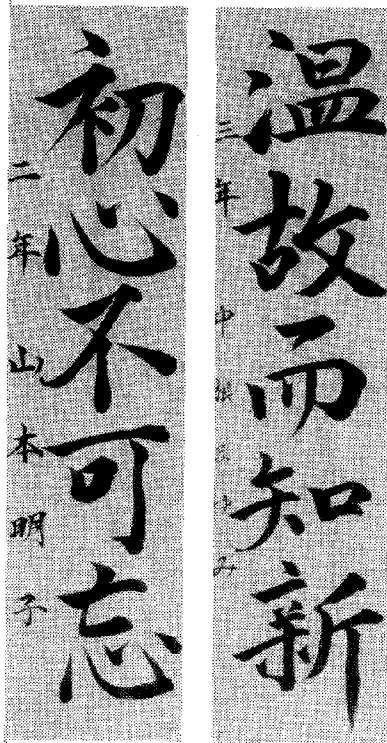 温故而知新
三年
初心不可忘
二年 山本明子